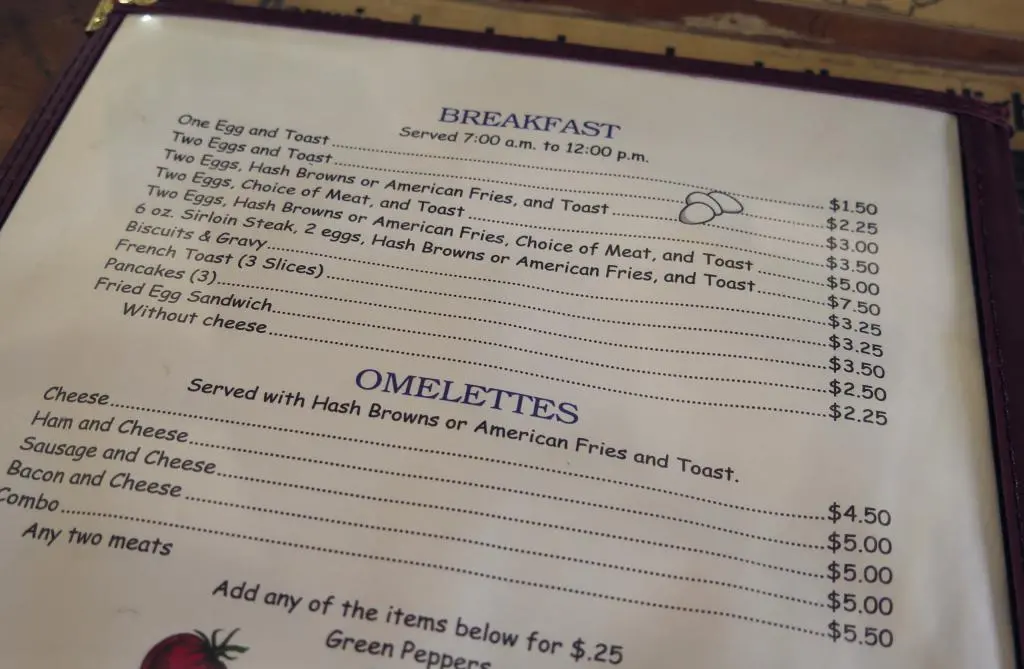 BREAKFAST
Served 7:00 a.m. to 12:00 p.m.
One Egg and Toast $1.50
Two Eggs and Toast $2.25
Two Eggs, Hash Browns or American Fries, and Toast $3.00
Two Eggs, Choice of Meat, and Toast $3.50
Two Eggs, Hash Browns or American Fries, Choice of Meat, and Toast $5.00
6 oz. Sirloin Steak, 2 eggs, Hash Browns or American Fries, and Toast $7.50
Biscuits & Gravy $3.25
French Toast (3 Slices) $3.25
Pancakes (3) $3.50
Fried Egg Sandwich $2.50
Without cheese $2.25
OMELETTES
Served with Hash Browns or American Fries and Toast.
Cheese $4.50
Ham and Cheese $5.00
Sausage and Cheese $5.00
Bacon and Cheese $5.00
Combo $5.50
Any two meats
Add any of the items below for $.25
Green Peppers